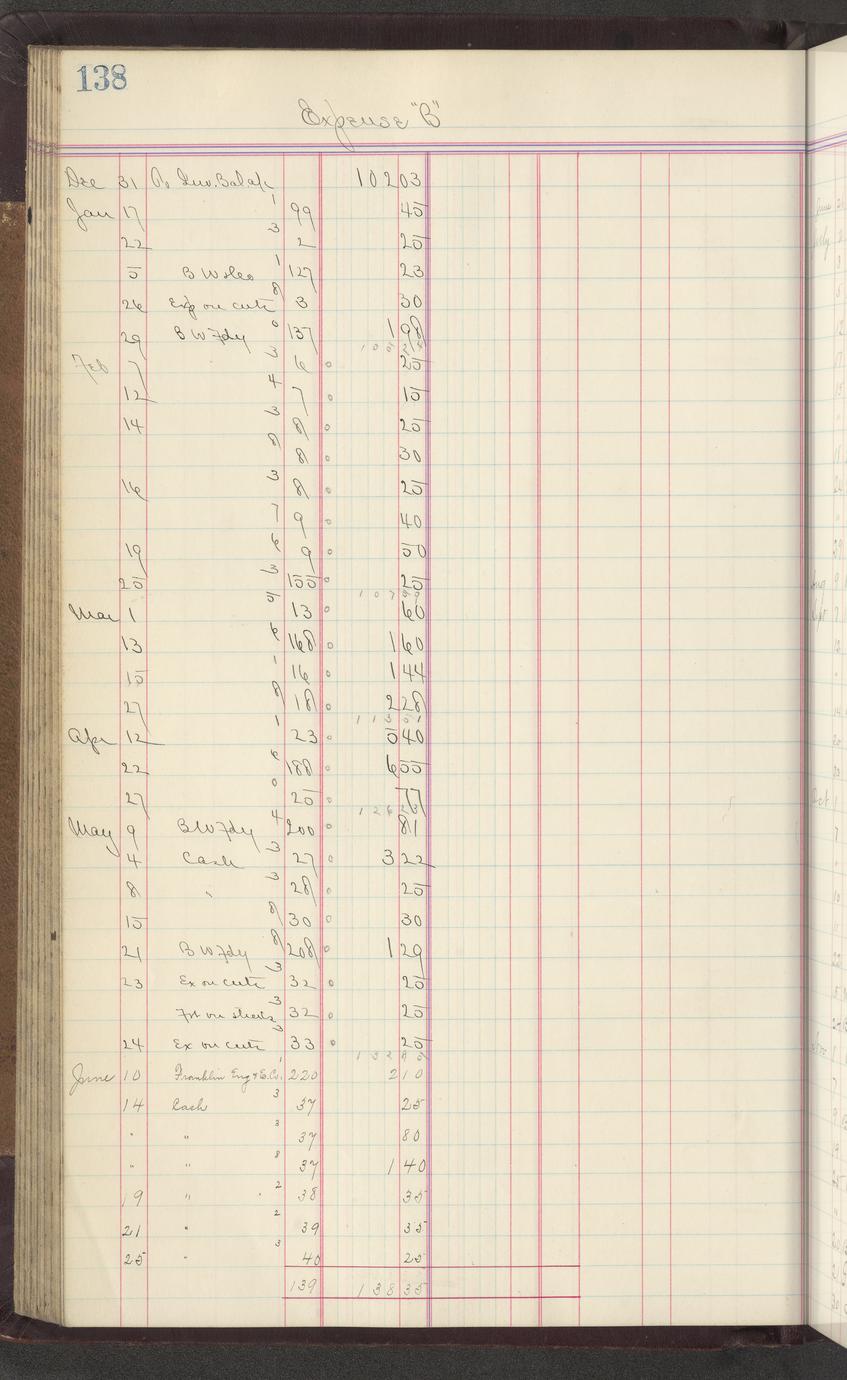 138
Expense "B"
Dec 31 Inv. Bal 102 03
Jan 17 1 99 45
22 3 2 25
5 B W 1 127 23
26 Exp on cuts 8 3 30
29 B W Fdy 0 137 1 98
Feb 7 3 6 25
12 4 7 15
14 3 8 25
8 8 30
16 3 8 25
7 9 40
19 6 9 50
25 3 155 25
Mar 1 5 13 60
13 6 168 1 60
15 1 16 1 44
27 8 18 2 28
113 51
Apr 12 1 23 5 40
22 6 188 6 55
27 0 25 77
May 9 B W Fdy 4 200 81
4 Cash 3 27 3 22
8 " 3 28 25
15 8 30 30
21 B W Fdy 8 208 1 29
23 Ex on cuts 3 32 25
Frt on 3 32 25
24 Ex on cuts 3 33 25
June 10 Franklin Eng & E. Co. 1 220 2 10
14 Cash 3 37 25
" " 3 37 80
" " 8 37 1 40
19 " 2 38 35
21 " 2 39 35
25 " 3 40 25
139 138 35